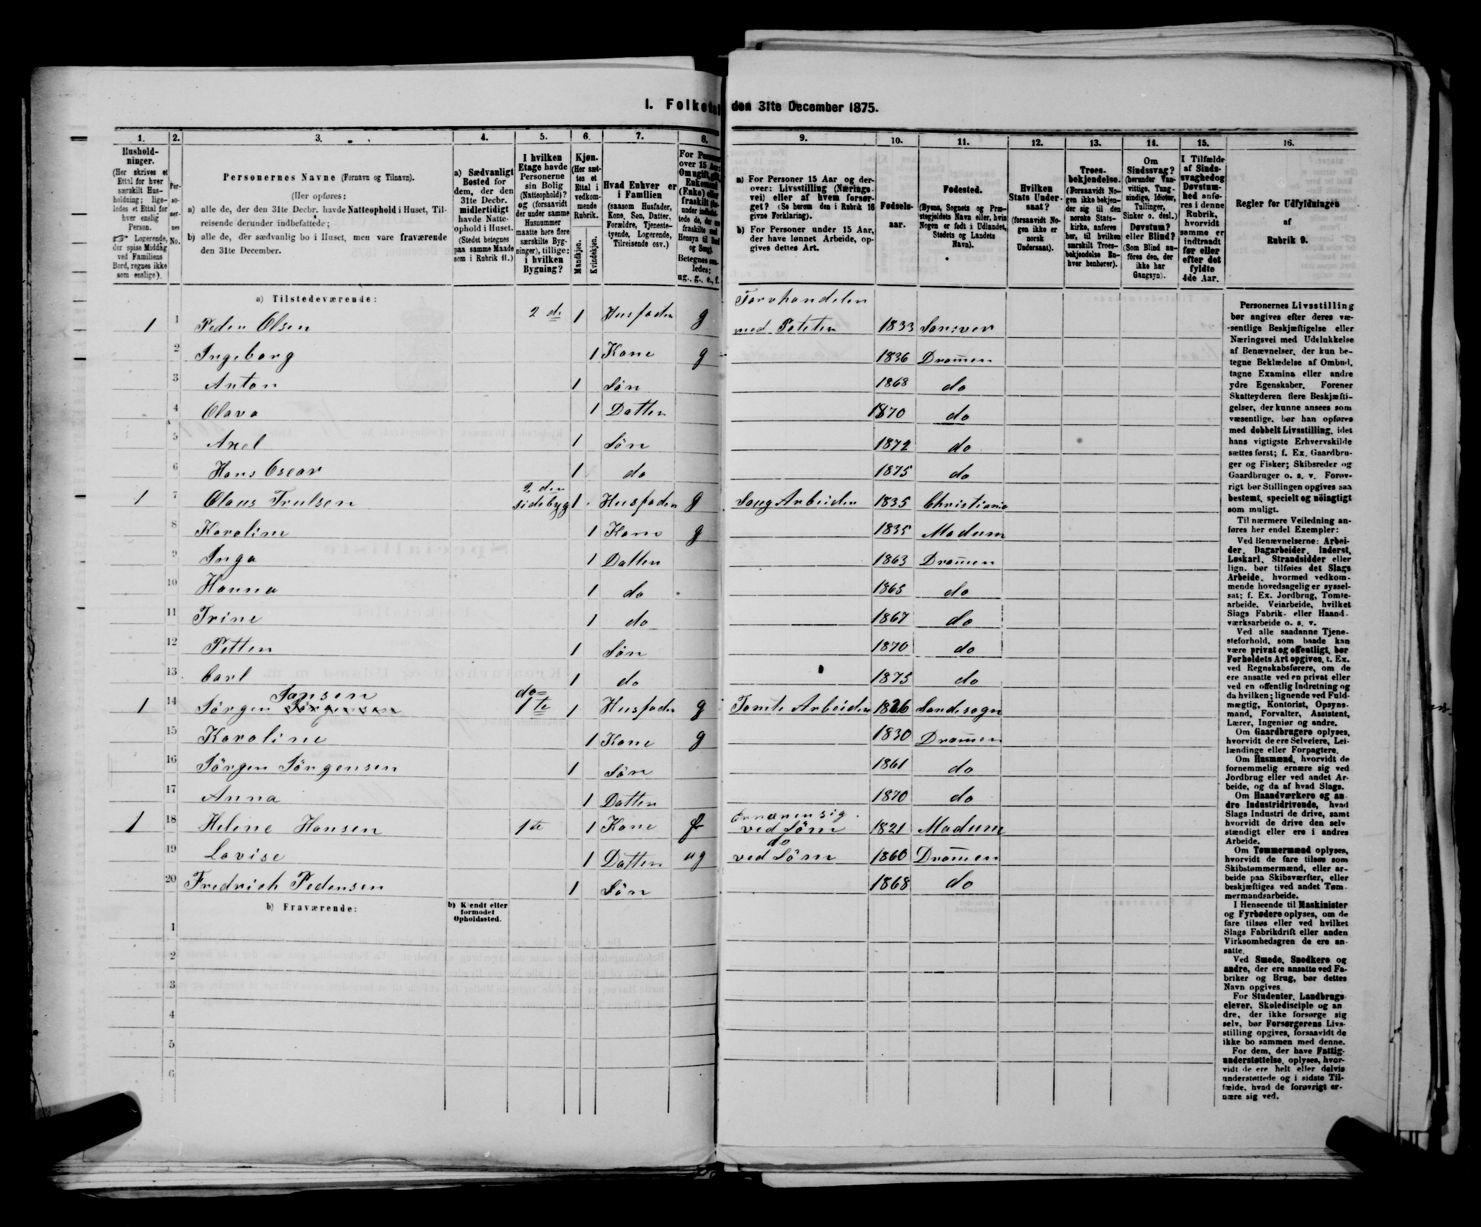 I. Folketal den 31te December 1875.
1. 2. 3. 4. 5. 6. 7. 8. 9. 10. 11. 12. 13. 14. 15. 16.
Hushold-
ninger.
(Her skrives et
Ettal for hver
særskilt Hus-
holdning; lige-
ledes et Ettal for
hver enslig
Person.
☞ Logerende,
der spise Middag
ved Familiens
Bord, regnes ikke
som enslige).
Per-
so-
ner-
nes
No.
Personernes Navne (Fornavn og Tilnavn).
(Her opføres:
a) alle de, der den 31te Decbr. havde Natteophold i Huset, Til-
reisende derunder indbefattede;
b) alle de, der sædvanlig bo i Huset, men vare fraværende
den 31te December.
a) Sædvanligt
Bosted for
dem, der den
31te Decbr.
midlertidigt
havde Natte-
ophold i Huset.
(Stedet betegnes
paa samme Maade
som i Rubrik 11.)
I hvilken
Etage havde
Personerne
sin Bolig
(Natteophold)?
(forsaavidt
der under samme
Husnummer
maatte høre flere
særskilte Byg-
ninger), tillige:
i hvilken
Bygning?
Kjøn.
(Her sæt-
tes et
Ettal i
vedkom-
mende
Rubrik.
Mandkjøn.
Kvindekjøn.
Hvad Enhver er
i Familien
(saasom Husfader,
Kone, Søn, Datter,
Forældre, Tjeneste-
tyende, Logerende,
Tilreisende osv.)
a) For Personer 15 Aar og der-
over: Livsstilling (Nærings-
vei) eller af hvem forsør-
get? (Se herom den i Rubrik 16
givne Forklaring).
b) For Personer under 15 Aar,
der have lønnet Arbeide, op-
gives dettes Art.
Fødsels-
aar.
Fødested.
(Byens, Sognets og Præ-
stegjeldets Navn eller, hvis
Nogen er født i Udlandet,
Stedets og Landets
Navn).
Hvilken
Stats Under-
saat?
(forsaavidt No-
gen ikke er
norsk
Undersaat).
Troes-
bekjendelse.
(Forsaavidt No-
gen ikke bekjen-
der sig til den
norske Stats-
kirke, anføres
her, til hvilken
særskilt Troes-
bekjendelse En-
hver henhører).
Om
Sindssvag?
(herunder Van-
vittige, Tung-
sindige, Idioter,
Tullinger,
Sinker o. desl.)
Døvstum?
eller Blind?
(Som Blind an-
føres den, der
ikke har
Gangsyn).
I Tilfælde
af Sinds-
svaghed og
Døvstum-
hed anfø-
res i denne
Rubrik,
hvorvidt
samme er
indtraadt
før eller
efter det
fyldte
4de Aar.
Regler for Udfyldningen
af
Rubrik 9.
a) Tilstedeværende:
1 1 Peder Olsen 2 de 1 Husfader g Torvhandler med Poteter 1833
2 Ingeborg 1 Kone g 1836 Dramen
3 Anton 1 Søn 1868 do
4 Olava 1 Datter 1870 do
5 Axel 1 Søn 1872 do
6 Hans Oscar 1 do 1875 do
1 7 Olaus Trulsen 2 den sidebyg 1 Husfader g Saug Arbeider 1835 Christiania
8 Karoline 1 Kone g 1835 Modum
9 Inga 1 Datter 1863 Dramen
10 Hanna 1 do 1865 do
11 Trine 1 do 1867 do
12 Petter 1 Søn 1870 do
13 Carl 1 do 1875 do
1 14 Jørgen Jansen Jørgensen do 1 te 1 Husfader g Tomte Arbeider 1826 Sandesogn
15 Karoline 1 Kone g 1830 Dramen
16 Jørgen Jørgensen 1 Søn 1861 do
17 Anna 1 Datter 1870 do
1 18 Heline Hansen 1 te 1 Kone Ernærer sig ved Søm 1821 Modum
19 Lovise 1 Datter ug do ved Søm 1860 Dramen
20 Fredrich Pedersen 1 Søn 1868 do
b) Fraværende:
b) Kjendt eller
formodet
Opholdssted.
1
2
3
4
5
6
Personernes Livsstilling
bør angives efter deres væ-
sentlige Beskjæftigelse eller
Næringsvei med Udelukkelse
af Benævnelser, der kun be-
tegne Beklædelse af Ombud,
tagne Examina eller andre
ydre Egenskaber. Forener
Skatteyderen flere Beskjæfti-
gelser, der kunne ansees som
væsentlige, bør han opføres
med dobbelt Livsstilling, idet
hans vigtigste Erhvervskilde
sættes først; f. Ex. Gaardbru-
ger og Fisker; Skibsreder og
Gaardbruger o. s. v. Forøv-
rigt bør Stillingen opgives saa
bestemt, specielt og nøiagtigt
som muligt.
Til nærmere Veiledning an-
føres her endel Exempler:
Ved Benævnelserne: Arbei-
der, Dagarbeider, Inderst,
Løskarl, Strandsidder eller
lign. bør tilføies det Slags
Arbeide, hvormed vedkom-
mende hovedsagelig er syssel-
sat; f. Ex. Jordbrug, Tomte-
arbeide, Veiarbeide, hvilket
Slags Fabrik- eller Haand-
værksarbeide o. s. v.
Ved alle saadanne Tjene-
steforhold, som baade kan
være privat og offentligt, bør
Forholdets Art opgives, t. Ex.
ved Regnskabsførere, om de
ere ansatte ved en privat eller
ved en offentlig Indretning og
da hvilken; lignende ved Fuld-
mægtig, Kontorist, Opsyns-
mand, Forvalter, Assistent,
Lærer, Ingeniør og andre.
Om Gaardbrugere oplyses,
hvorvidt de ere Selveiere, Lei-
lændinge eller Forpagtere.
Om Husmænd, hvorvidt de
fornemmelig ernære sig ved
Jordbrug eller ved andet Ar-
beide, og da af hvad Slags.
Om Haandværkere og an-
dre Industridrivende, hvad
Slags Industri de drive, samt
hvorvidt de drive den selv-
stændigt eller ere i andres
Arbeide.
Om Tømmermænd oplyses,
hvorvidt de fare tilsøs som
Skibstømmermænd, eller ar-
beide paa Skibsværfter, eller
beskjæftiges ved andet Tøm-
mermandsarbeide.
I Henseende til Maskinister
og Fyrbødere oplyses, om de
fare tilsøs eller ved hvilket
Slags Fabrikdrift eller anden
Virksomhedsgren de ere an-
satte.
Ved Smede, Snedkere og
andre, der ere ansatte ved Fa-
briker og Brug, bør dettes
Navn opgives
For Studenter, Landbrugs-
elever, Skoledisciple og an-
dre, der ikke forsørge sig
selv, bør Forsørgerens Livs-
stilling opgives, forsaavidt de
ikke bo sammen med denne.
For dem, der have Fattig-
understøttelse, oplyses, hvor-
vidt de ere helt eller delvis
understøttede og i sidste Til-
fælde, hvad de forøvrigt er-
nære sig ved.